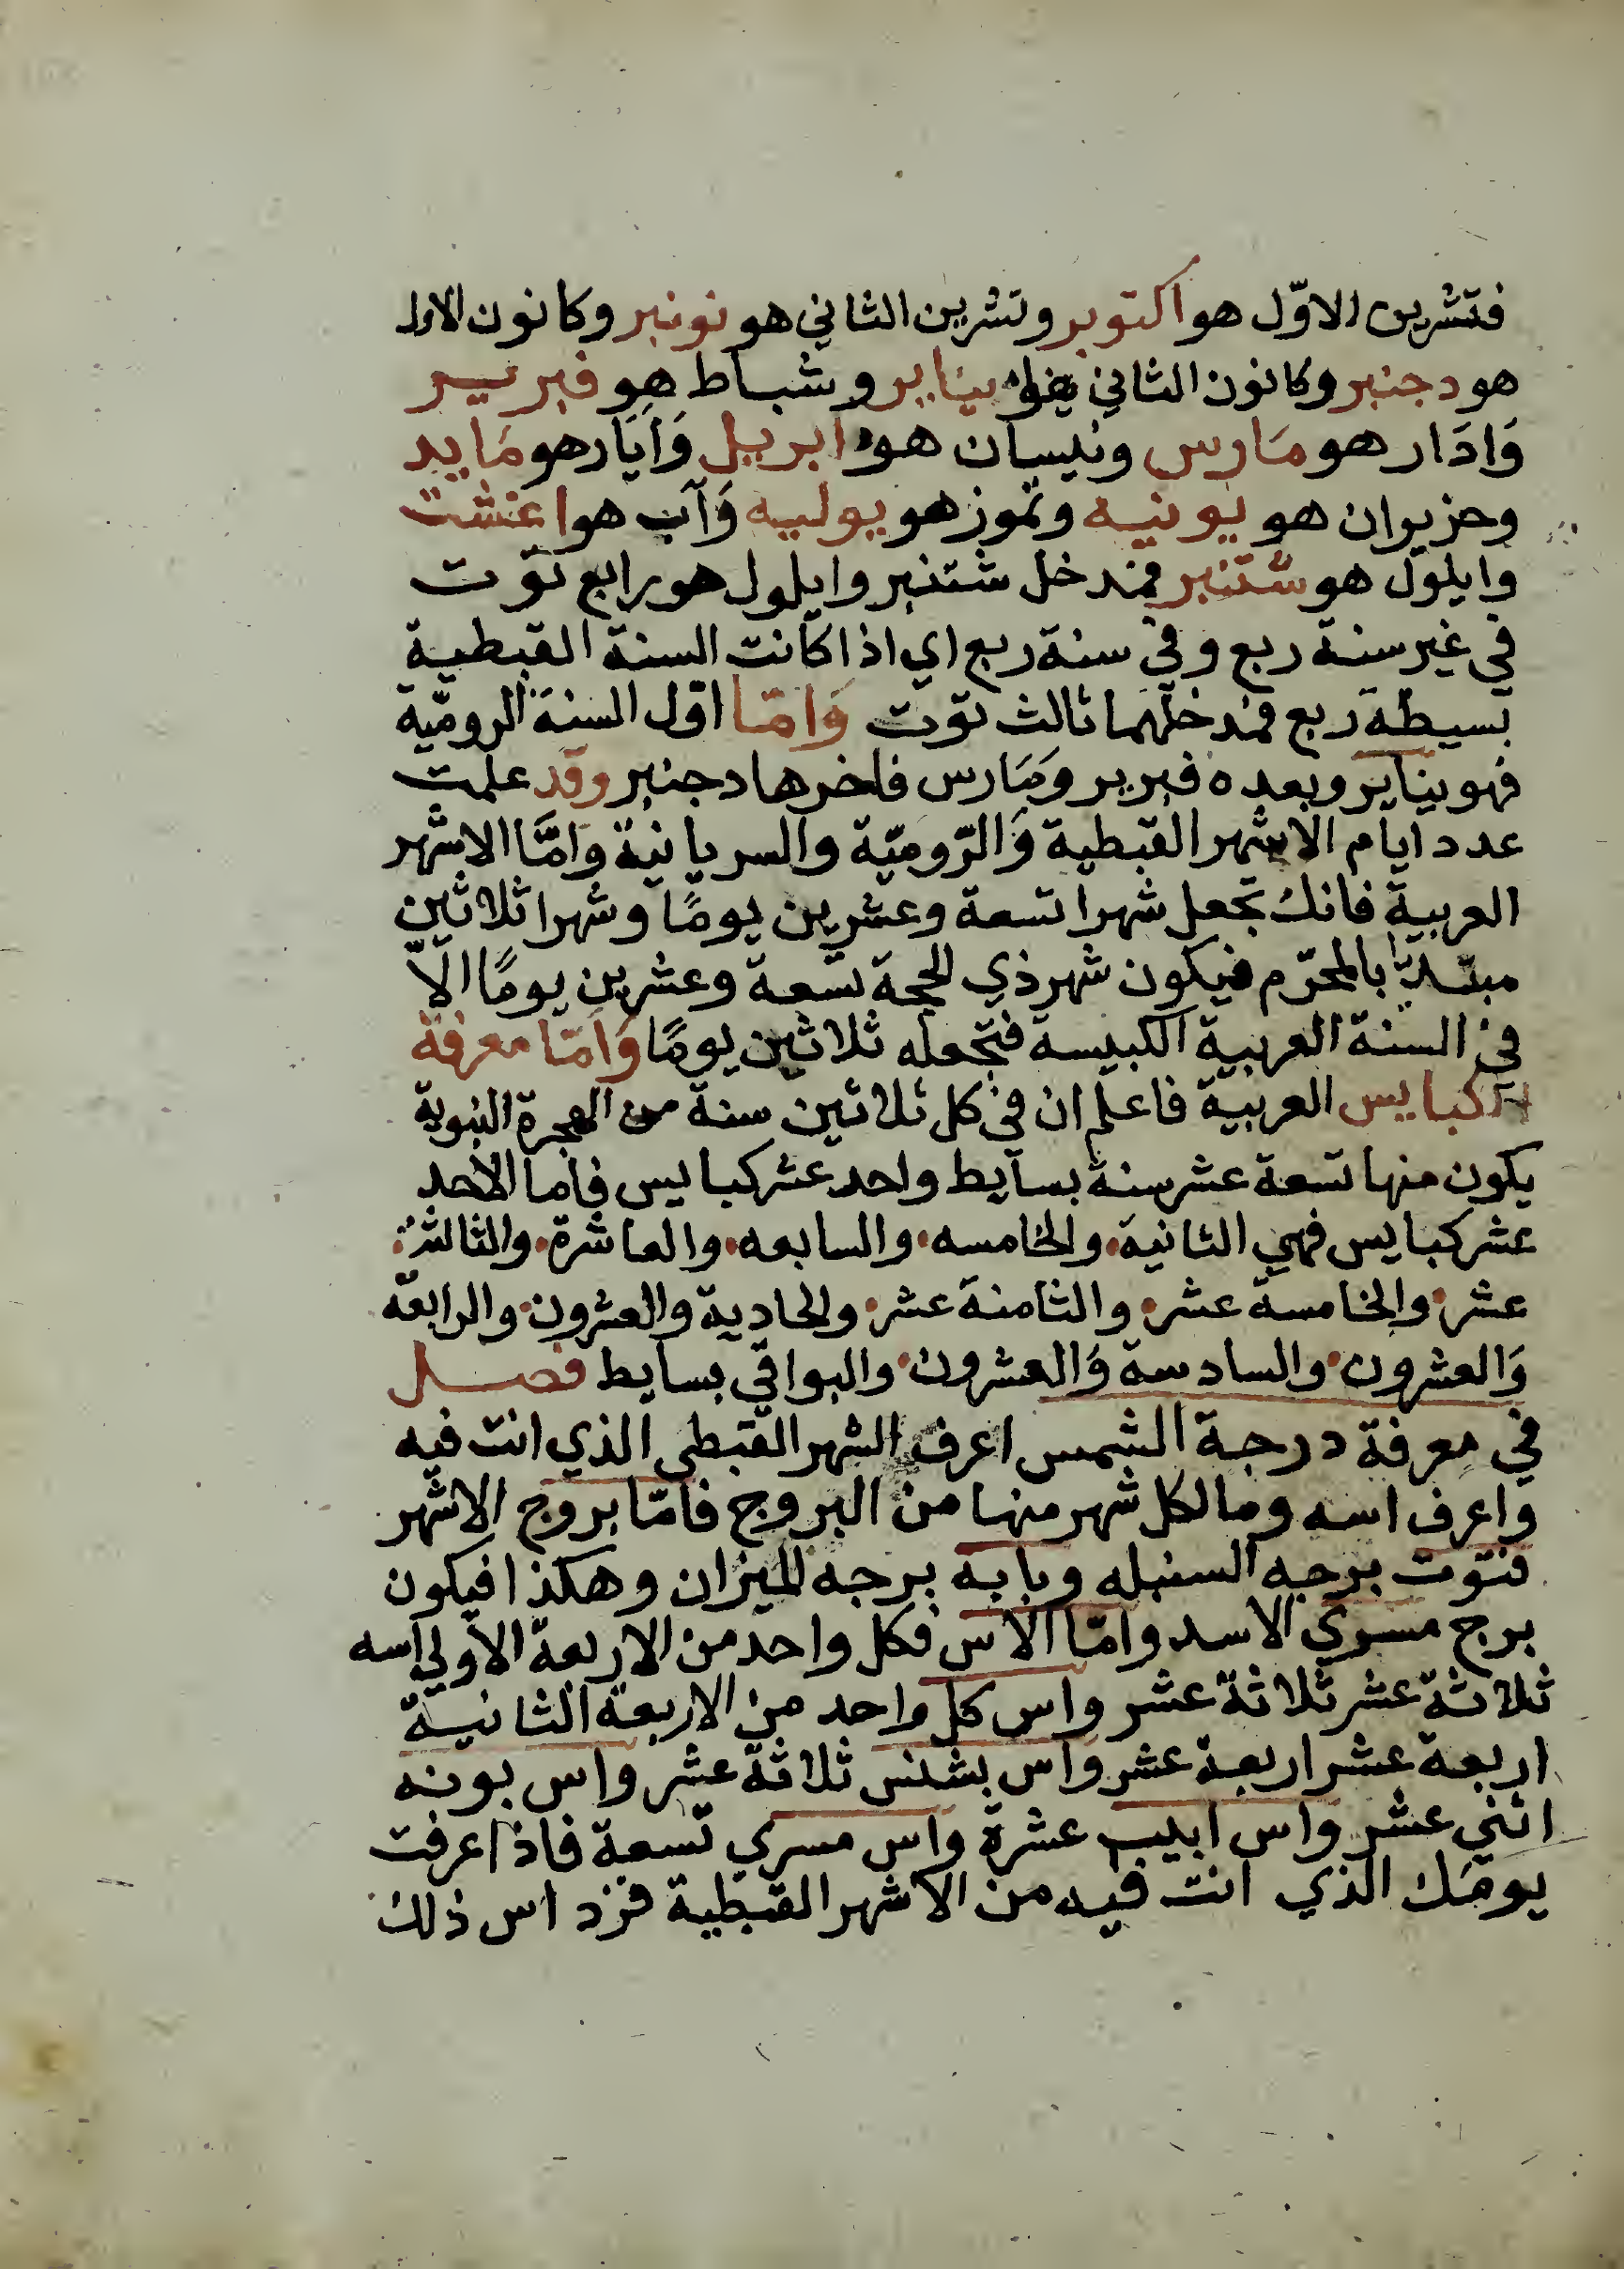 فتشرين الاوّل هو اكتوبر وتشرين الثاني هو نونبر وكانون الاول
هو دجنبر وكانون الثاني هو ينايبر وشباط هو فبريير
وَاذَار هو مَارس ونيسان هو ابريل وَاَيَار هو مَايه
وحزيران هو يونيه وتموز هو يوليه وَآب هو اغشت
وايلول هو شتنبر فمدخل شتنبر وايلول هو رابع توت
في غير سنة ربع وفي سنة ربع اي اذا كانت السنة القبطية
بسيطة ربع فمدخلهما ثالث توت وَامّا اوّل السنة الروميّة
فهو يناير وبعده فبرير وَمَارس فاخرها دجنبر وقد علمت
عدد ايام الاشهر القبطية وَالرّوميّة والسريانية وَامَّا الاشهر
العربية فانك تجعل شهرا تسعة وعشرين يومًا وشهرا ثلاثين
مبتديًّا بالمحرّم فيكون شهر ذي الحجة تسعة وعشرين يومًا الاّ
في السنة العربية الكبيسة فتجعله ثلاثين يومًا وَامّا معرفة
الكبايس العربية فاعلم ان في كل ثلاثين سنة من الهجرة النبوية
يكون منها تسعة عشر سنة بسايط واحد عشر كبايس فاما الاحد
عشر كبايس فهي الثانية والخامسه والسابعه والعاشرة والثالثة
عشر والخامسة عشر والثامنة عشر والحادية والعشرون والرابعة
وَالعشرون والسادسة وَالعشرون والبواقي بسايط فصل
في معرفة درجة الشمس اعرف الشهر القبطي الذي انت فيه
واعرف اسه وما لكل شهر منها من البروج فامّا بروج الاشهر
فتوت برجه السنبله وبابه برجه الميزان وهكذا فيكون
برج مسري الاسد وامّا الاس فكل واحد من الاربعة الأولي اسه
ثلاثة عشر ثلاثة عشر واس كل واحد من الاربعة الثانية
اربعة عشر اربعة عشر واس بشنس ثلاثة عشر واس بونه
اثني عشر واس ابيب عشرة واس مسري تسعة فاذا عرفت
يومَك الذي انت فيه من الاشهر القبطية فزد اس ذلك